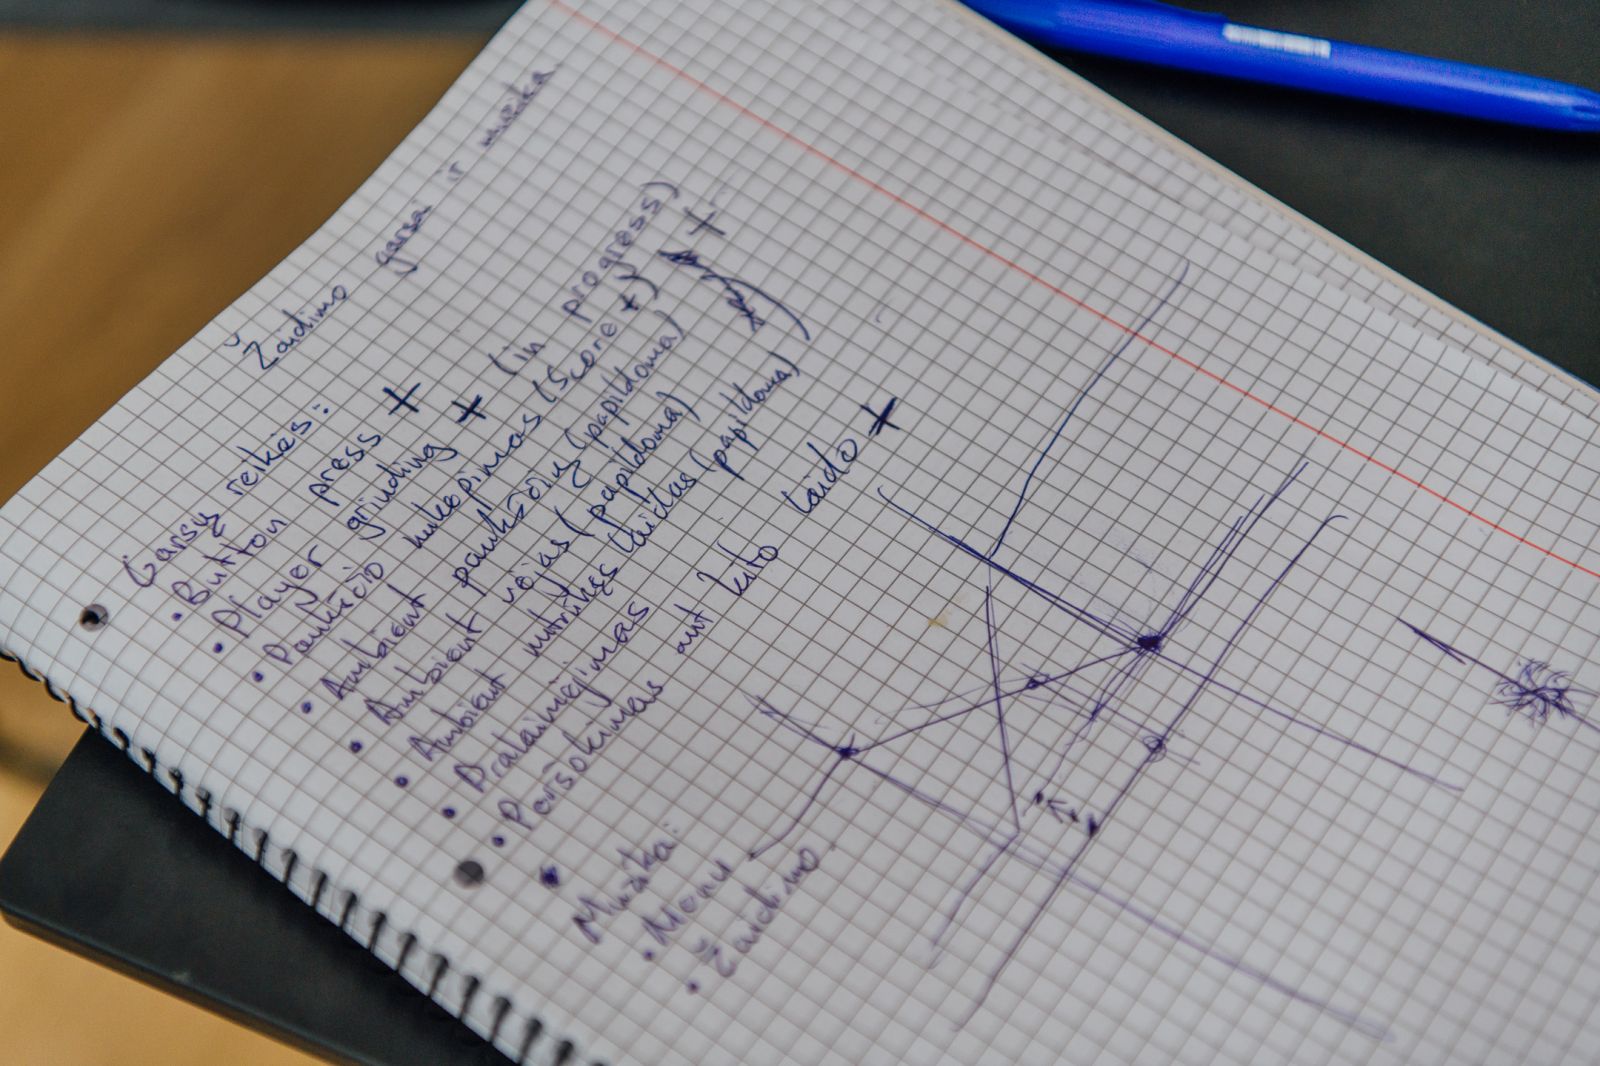 Žaidimo garsai ir muzika
Garsų reikės:
• Button press +
• Player grinding + (in progress)
• Paukščio nukopimas (Score +)
• Ambient paukščių (papildoma)
• Ambient vėjas (papildoma)
• Ambient nutrūkęs laidas (papildoma)
• Pralaimėjimas
• Peršokimas ant kito laido +
Muzika:
• Menu
• Žaidimo